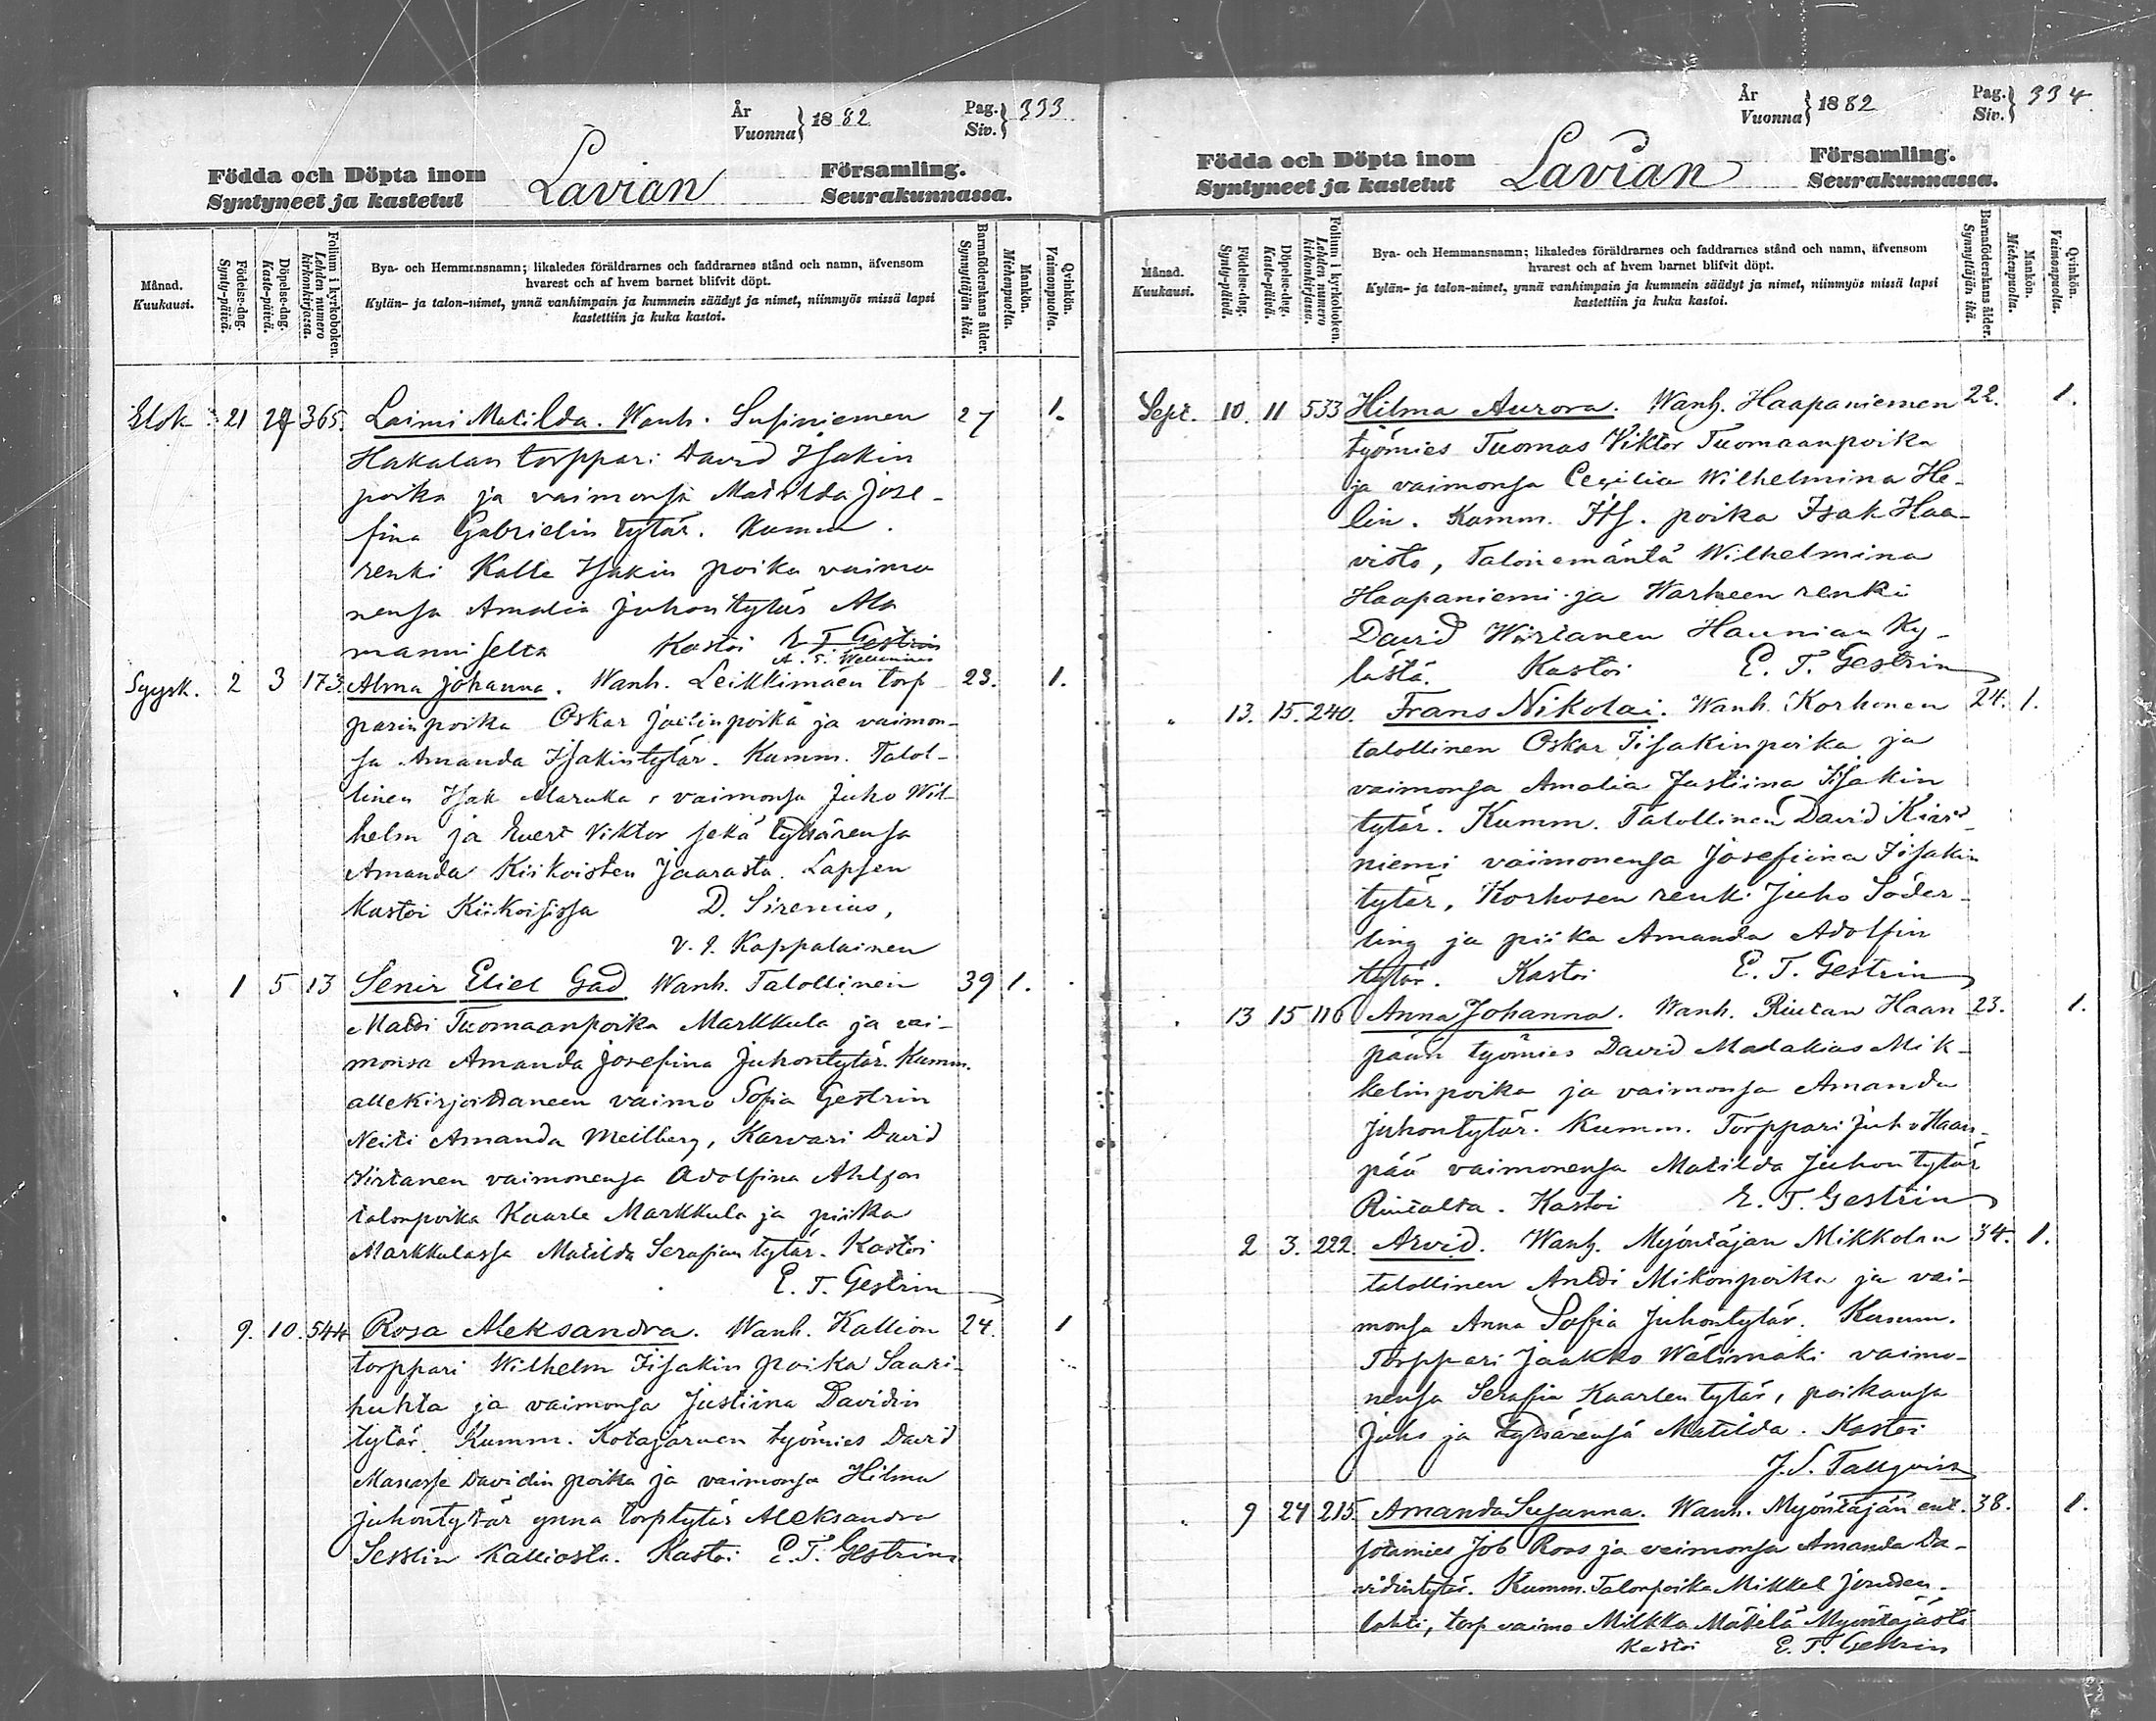 År
Vuonna } 1882
Pag.
Siv. } 333
Födda och Döpta inom
Syntyneet ja kastetut
Lavian
Församling.
Seurakunnassa.
Månad.
Kuukausi.
Födelse-dag.
Synty-päivä.
Döpelse-dag.
Kaste-päivä.
Folium i kyrkoboken.
Lehden numero kirkonkirjassa.
Bya- och Hemmansnamn; likaledes föräldrarnes och faddrarnes stånd och namn, äfvensom
hvarest och af hvem barnet blifvit döpt.
Kylän- ja talon-nimet, ynnä vanhimpain ja kummein säädyt ja nimet, niinmyös missä lapsi
kastettiin ja kuka kastoi.
Barnaföderskans ålder.
Synnyttäjän ikä.
Mankön.
Miehenpuolta.
Qvinkön.
Vaimonpuolta.
Elok 21 365. Laimi Matilda. Wanh. Susiniemen 27 1.
Hakalan torppari David Isakin
poika ja vaimonsa Matilda Jose-
fina Gabrielin tytär. Kumm.
renki Kalle Isakin poika vaimo
nensa Amalia Juhontytär Ala
manniselta Kastoi E. T. Gestrin
A. E.
Syysk. 2 3 173 Alma Johanna. Wanh. Leikkimäen torp 23. 1.
parinpoika Oskar Joelinpoika ja vaimon-
sa Amanda Isakintytär. Kumm. Talol-
linen Isak vaimonsa Juho Wil-
helm ja Evert Viktor sekä tyttärensä
Amanda Kiikoisten Jaarasta. Lapsen
kastoi Kiikoisissa D. Sirenius,
v. t. Kappalainen
1 5 13 Senir Eliel Gad. Wanh. Talollinen 39 1.
Matti Tuomaanpoika Markkula ja vai-
monsa Amanda Josefina Juhontytär. Kumm.
allekirjoittaneen vaimo Sofia Gestrin
Neiti Amanda Meilberg, Karvari David
Virtanen vaimonensa Adolfina
talonpoika Kaarle Markkula ja piika
Markkulassa Matilda Serafian tytär. Kastoi
E. T. Gestrin
9. 10. 544 Rosa Aleksandra. Wanh. Kallion 24. 1
torppari Wilhelm Iisakin poika Saari-
huhta ja vaimonsa Justiina Davidin
tytär. Kumm. Kotajärven työmies David
Manasse Davidin poika ja vaimonsa Hilma
Juhontytär ynna torp tytär Aleksandra
Kalliosta. Kastoi E. T. Gestrin
År
Vuonna } 1882
Pag.
Siv. } 334.
Födda och Döpta inom
Syntyneet ja kastetut
Lavian
Församling.
Seurakunnassa.
Månad.
Kuukausi.
Födelse-dag.
Synty-päivä.
Döpelse-dag.
Kaste-päivä.
Folium i kyrkoboken.
Lehden numero kirkonkirjassa.
Bya- och Hemmansnamn; likaledes föräldrarnes och faddrarnes stånd och namn, äfvensom
hvarest och af hvem barnet blifvit döpt.
Kylän- ja talon-nimet, ynnä vanhimpain ja kummein säädyt ja nimet, niinmyös missä lapsi
kastettiin ja kuka kastoi.
Barnaföderskans ålder.
Synnyttäjän ikä.
Mankön.
Miehenpuolta.
Qvinkön.
Vaimonpuolta.
Sept. 10. 11 533 Hilma Aurora. Wanh. Haapaniemen 22. 1.
työmies Tuomas Viktor Tuomaanpoika
ja vaimonsa Cecilia Wilhelmina He-
lin. Kumm. Its. poika Isak Haa-
visto, Talonemäntä Wilhelmina
Haapaniemi ja Warheen renki
David Wirtanen Haunian Ky-
lästä. Kastoi E. T. Gestrin
" 13. 15. 240. Frans Nikolai. Wanh. Korhonen 24. 1.
talollinen Oskar Iisakinpoika ja
vaimonsa Amalia Justiina Isakin
tytär. Kumm. Talollinen David Kivi-
niemi vaimonensa Josefiina Iisakin
tytär, Korhosen renki Juho Söder-
ling ja piika Amanda Adolfin
tytär. Kastoi E. T. Gestrin
" 13 15 116 Anna Johanna. Wanh. Riutan Haan 23. 1.
pään työmies David Matalias Mik-
kelinpoika ja vaimonsa Amanda
Juhontytär. Kumm. Torppari Juho Haan-
pää vaimonensa Matilda Juhon tytär
Riutalta. Kastoi E. T. Gestrin
2 3. 222. Arvid. Wanh. Myöntäjän Mikkolan 34. 1.
talollinen Antti Mikonpoika ja vai-
monsa Anna Sofia Juhontytär. Kumm.
Torppari Jaakko Wälimäki vaimo-
nensa Serafia Kaarlen tytär, poikansa
Juho ja tyttärensä Matilda. Kastoi
J. S. Tallqvist
" 9 24 215. Amanda Susanna. Wanh. Myöntäjän ent. 38. 1.
sotamies Job Roos ja vaimonsa Amanda Da-
vidintytär. Kumm. Talonpoika Mikkel Jouden-
lahti, torp vaimo Milkka Mäkelä Myöntäjästä
Kastoi E. T. Gestrin